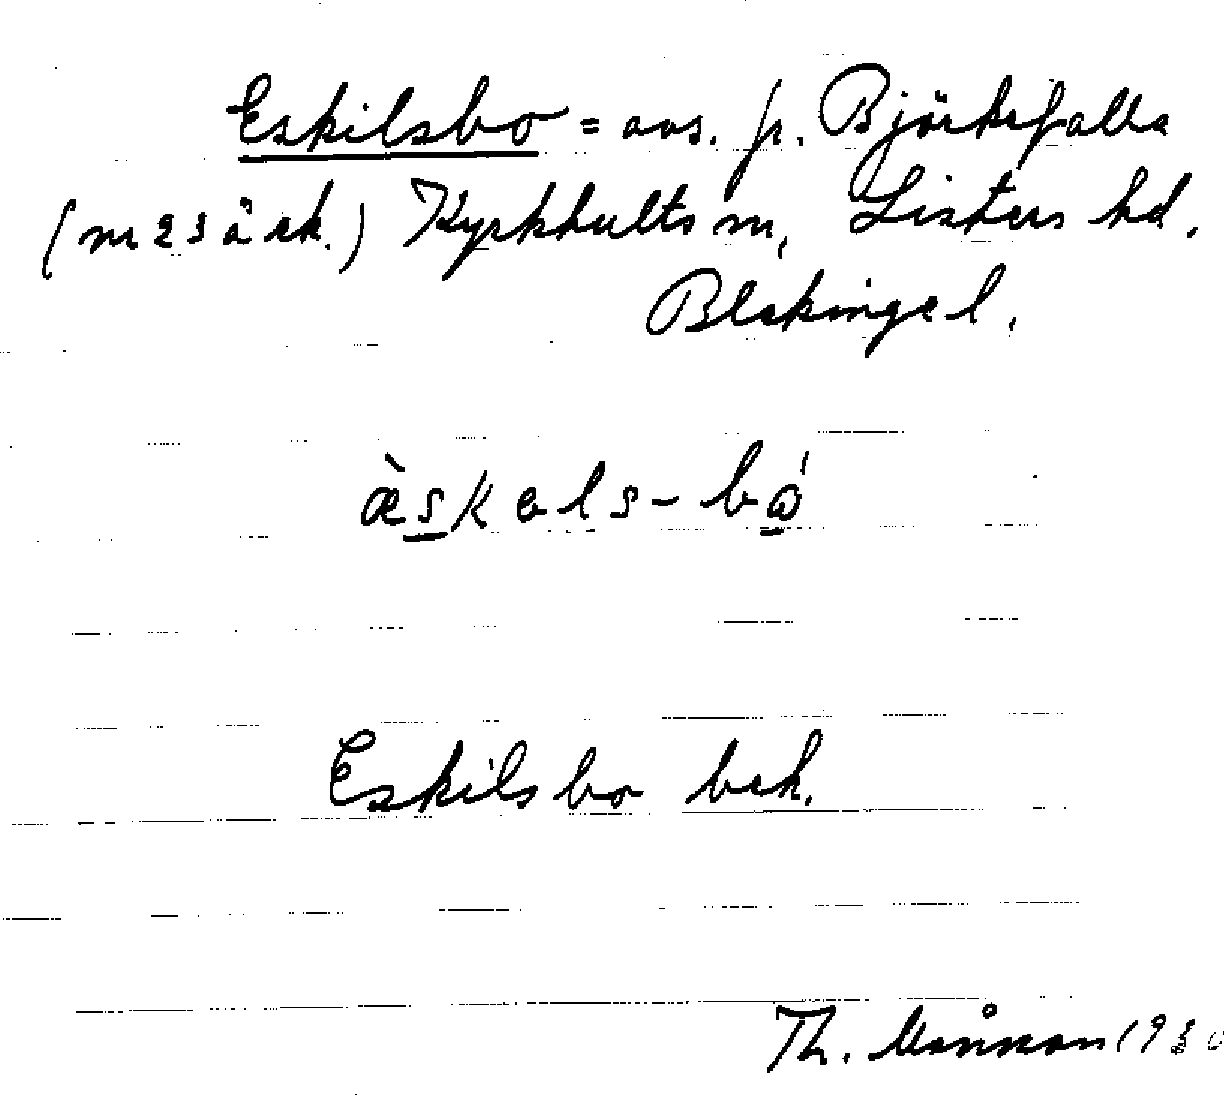 Eskilsbo = avs. fr. Björksfalla
(nr 23 å ek.) Kyrkhults sn, Listers hd.
Blekinge l.
æ̀skəls-bó
Eskilsbo bek.
Th. Månsson 1930